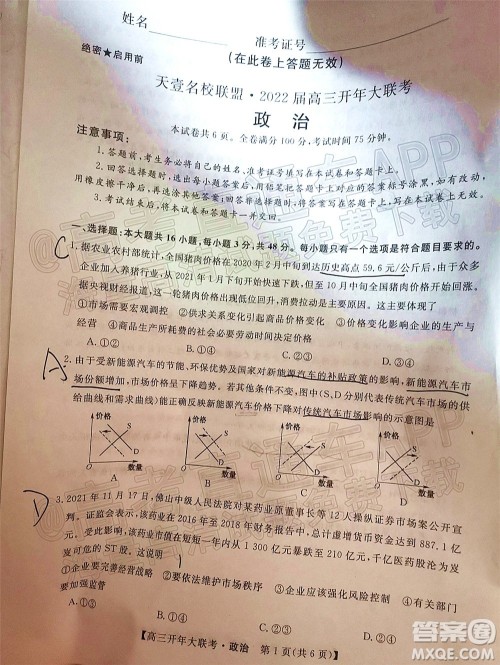 姓名
准考证号
(在此卷上答题无效)
绝密★启用前
天壹名校联盟·2022届高三开年大联考
政 治
本试卷共6页。全卷满分100分,考试时间75分钟。
注意事项:
1.答题前,考生务必将姓名、准考证号填写在本试卷和答题卡上。
2.回答选择题时,选出每小题答案后,用铅笔把答题卡上对应题目的答案标号涂黑,如需改动,
用橡皮擦干净后,再选涂其他答案标号。回答非选择题时,将答案写在答题卡上。写在本试卷上无效。
3.考试结束后,将本试卷和答题卡一并交回。
一、选择题:本大题共16小题,每小题3分,共48分。每小题只有一个选项是最符合题目要求的。
C
1.据农业农村部统计,全国猪肉价格在2020年2月中旬到达历史高点59.6元/公斤后,由于
企业加入养猪行业,从2021年1月下旬开始回落。但2021年10月中旬全国猪肉价格开始回升。
据央视财经报道,这一轮猪肉价格回升,消费拉动了主要作用。由此可见
①市场需要宏观调控 ②供求关系变动引起商品价格变化 ③价格变化影响企业的生产与
经营 ④生产商品的社会必要劳动时间决定商品价格
A.①③ B.①④ C.②③ D.②④
A
2.由于受新能源汽车的节能、环保优势及国家对新能源汽车的补贴政策的影响,新能源汽车市
场份额增加,市场规模不断扩大。假定其他条件不变,下列选项(S、D分别代表传统汽车的
供给曲线和需求曲线)能正确反映新能源汽车价格下降对传统汽车市场影响的示意图是
价格 价格 价格 价格
S S S S
D D D D
O 数量 O 数量 O 数量 O 数量
A B C D
D
3.2021年11月17日,佛山中级人民法院对某药业原董事长等12人操纵证券市场案公开宣
判。证监会表示,该药业在2016年至2018年财务报告中,货币资金余额虚增合计达887.1亿
元。该药业股票市值在短短一年内,从1300亿元暴跌至210亿元,千亿医药股沦为无
可救药的ST股。这说明
①企业要完善经营战略 ②要依法维护市场秩序 ③企业应该强化风险控制 ④有关部门
要加强监管
A.①② B.①③ C.②③ D.②④
【高三开年大联考·政治 第1页(共6页)】
答案圈
MXQE.COM